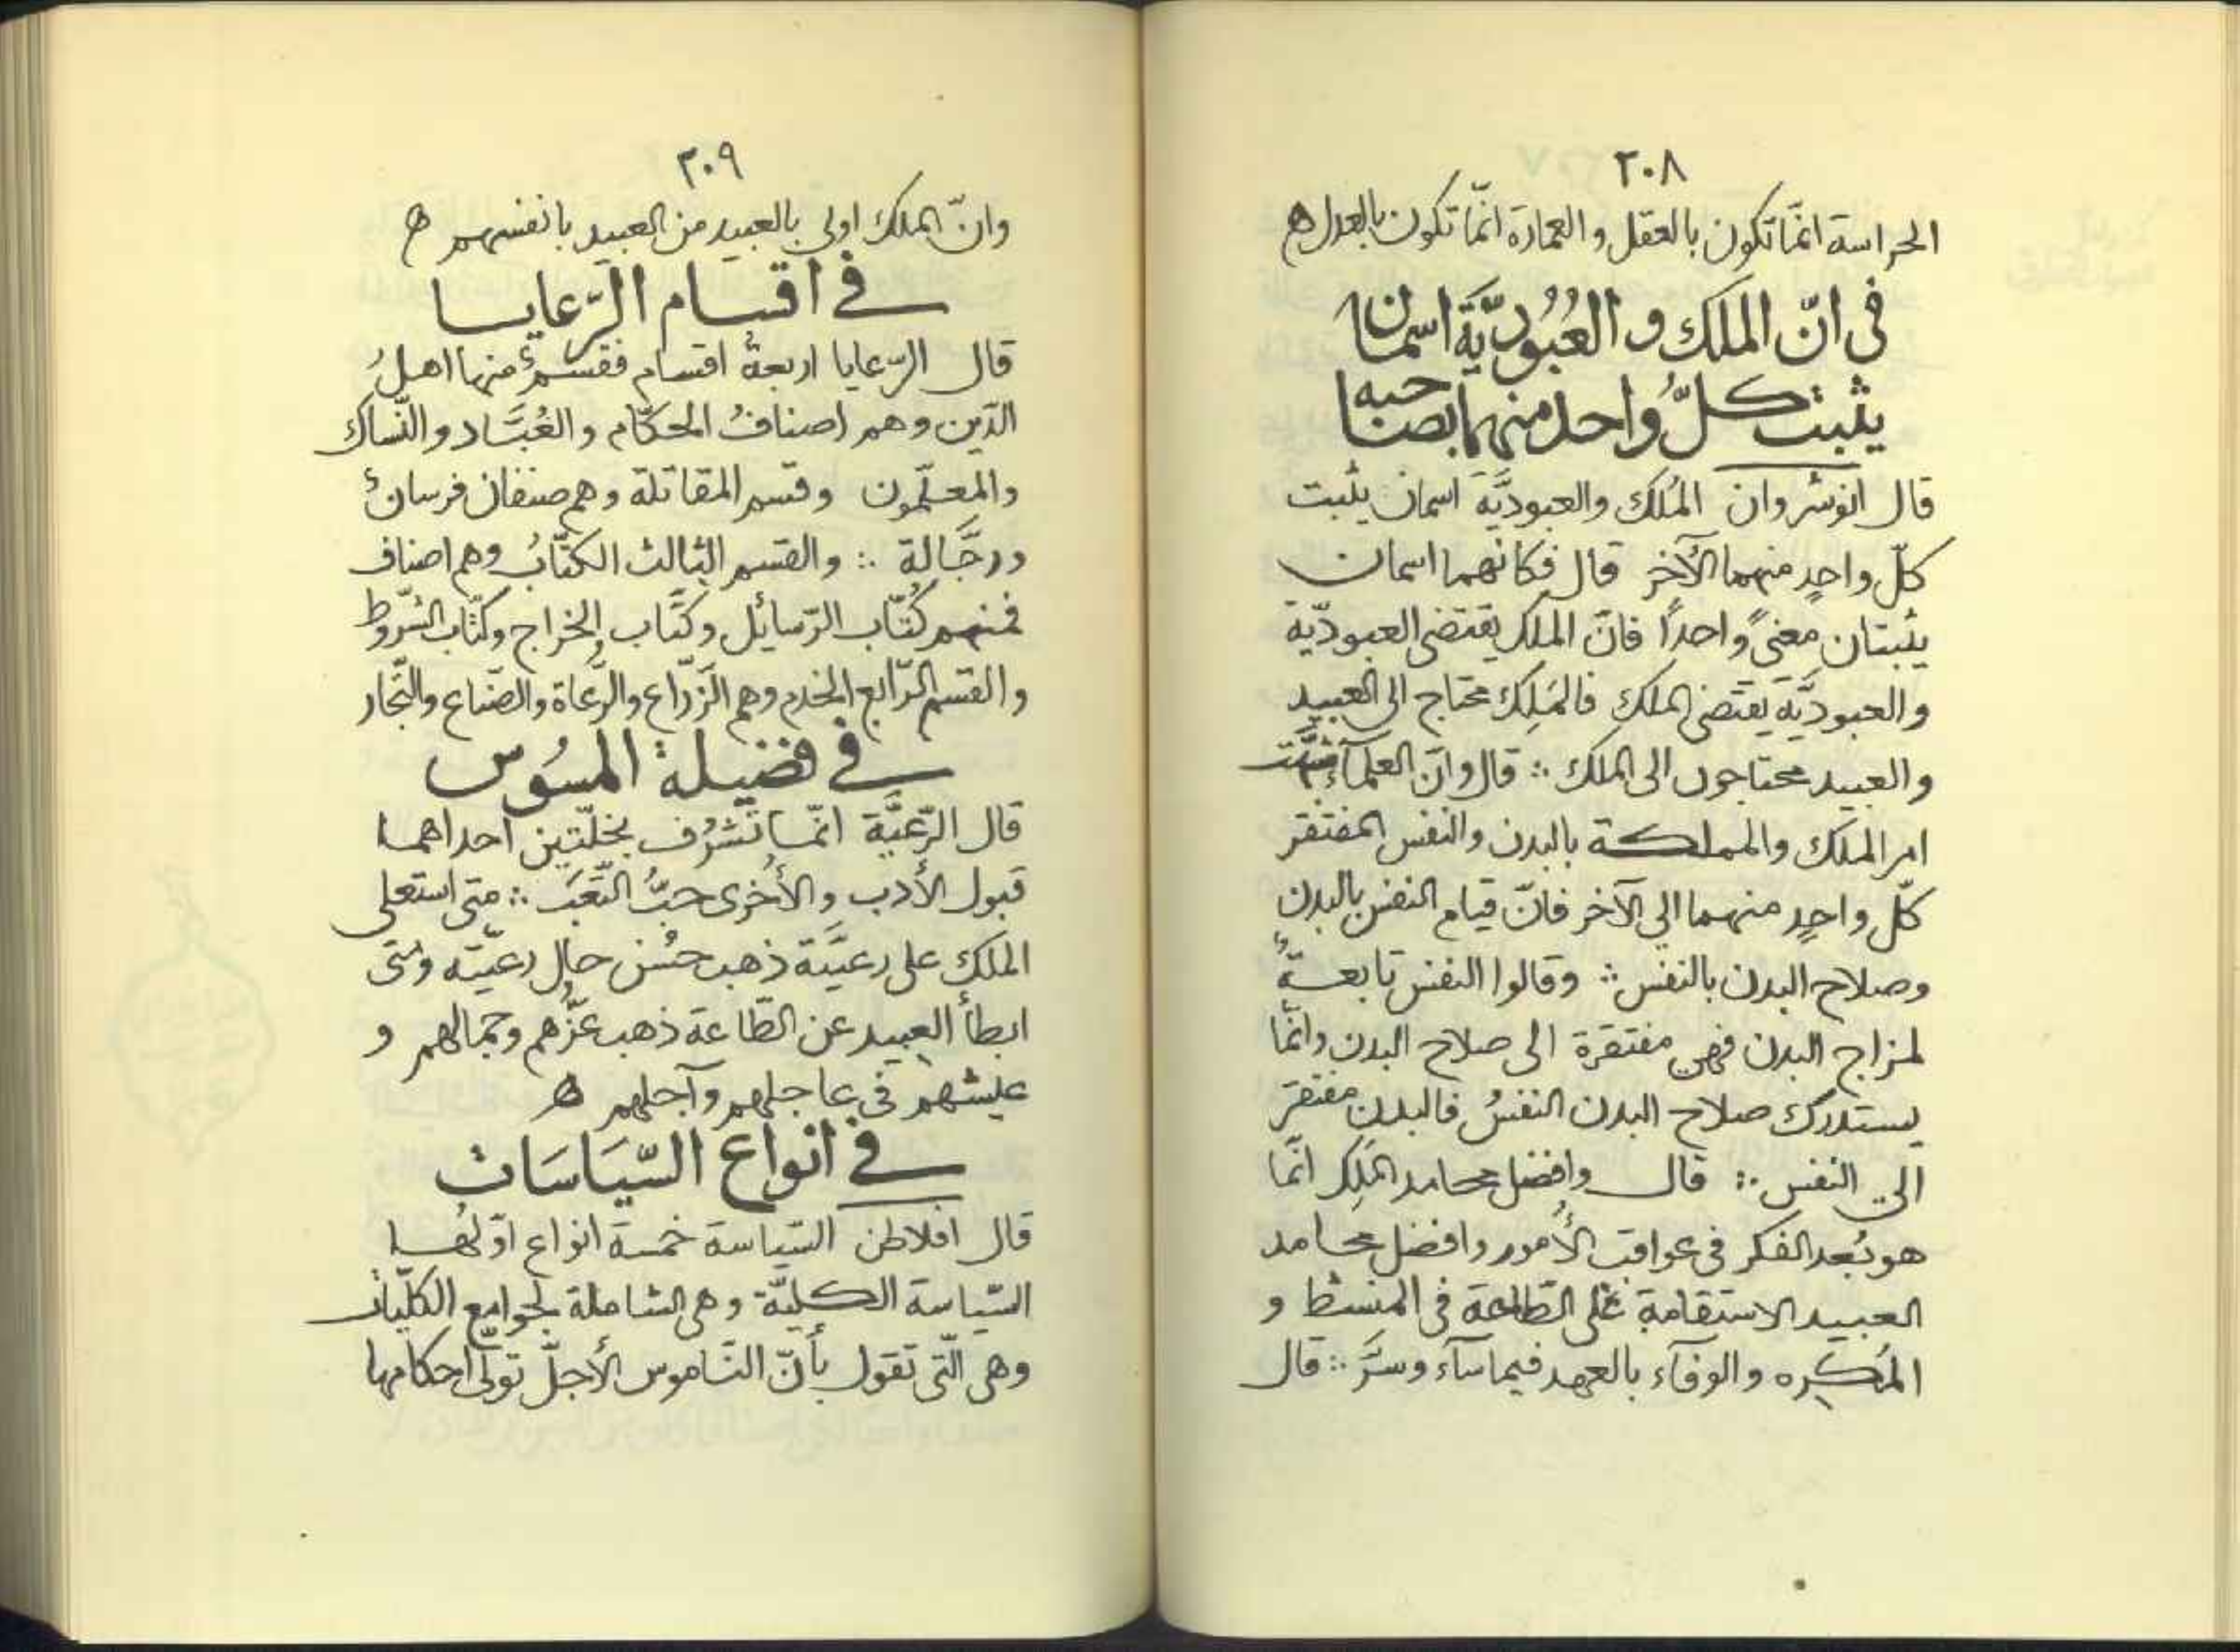 ٢٠٨
الحراسة انّما تكون بالعقل و العمارة انّما تكون بالعدل ه
فى انّ الملك و العُبُوديَّة اسمان
يثبت كلّ واحد منهما بصاحبه
قال انوشروان المُلك والعبوديَّة اسمان يثبت
كلّ واحدٍ منهما الآخر قال فكانهما اسمان
يثبتان معنىً واحداً فانّ الملك يقتضى العبوديّة
والعبوديَّة يقتضى الملك فالمَلِك محتاج الى العبيد
والعبيد محتاجون الى الملك ∴ قال وانّ العلمآء شبّهت
امر الملك والمملكة بالبدن والنفس المفتقر
كلّ واحدٍ منهما الى الآخر فانّ قيام النفس بالبدن
وصلاح البدن بالنفس ∴ وقالوا النفس تابعةٌ
لمزاج البدن فهى مفتقرة الى صلاح البدن وانّما
يستدرك صلاح البدن النفسُ فالبدن مفتقر
الى النفس ∴ قال وافضل محامد المَلِك انّما
هو بُعد الفكر فى عواقب الأُمور وافضل محامد
العبيد الاستقامة على الطّاعة فى المنشط و
المَكرِه والوفآء بالعهد فيما سآء وسَرَّ ∴ قال
٢٠٩
وانّ الملك اولى بالعبيد من العبيد بانفسهم ه
فى اقسام الرّعايا
قال الرّعايا اربعةُ اقسام فقسمٌ منها اهلُ
الدّين وهم اصنافُ الحكّام والعُبَّاد والنّساك
والمعلّمون وقسم المقاتلة وهم صنفان فرسانٌ
ورجَّالة ∴ والقسم الثالث الكتّابُ وهم اصناف
فمنهم كُتّاب الرّسائل وكتّاب الخراج وكتّاب الشّروط
والقسم الرّابع الخدم وهم الزّرّاع والرُّعاة والصّناع والتّجار
فى فضيلة المسُوس
قال الرّعيَّة انّما تشرُف بخلّتين احداهما
قبول الأدب والأُخرى حبُّ التّعب ∴ متى استعلى
الملك على رعيَّته ذهب حسُن حال رعيّته ومتى
ابطأ العبيد عن الطّاعة ذهب عزُّهم وجمالهم و
عيشهم فى عاجلهم وآجلهم ه
فى انواع السّيَاسَات
قال افلاطن السّياسة خمسة انواع اوّلها
السّياسة الكليّة وهى الشاملة لجوامع الكلّيات
وهى الّتى تقول بأنّ النّاموس الأجلّ تولّى احكامها